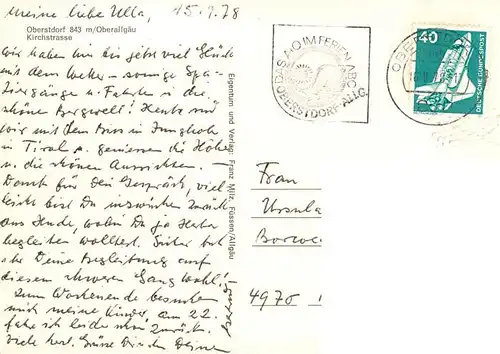 meine liebe Ulla, 15.9.78
Oberstdorf 843 m/Oberallgäu
Kirchstrasse
wir haben hin bis jetzt viel Glück
mit dem Wetter - sonnige Spa-
ziergänge u. Fahrten in die
schöne Bergwelt! Heute sind
wir mit dem Bus in Jungholz
in Tirol u. geniessen die Höhe
u. die schönen Aussichten.
Dank für Dein Gespräch, viel-
leicht bist Du inzwischen zurück
aus Hude, wohin Du ja Hata
begleiten wolltest. Sicher tut
ihr Deine Begleitung auf
diesem schweren Gang wohl!
Zum Wochenende besuchen
mich meine Kinder, am 22.
fahre ich leider schon zurück.
Viele herzl. Grüsse Dir Deine
Eigentum und Verlag: Franz Milz, Füssen/Allgäu
DAS A+O IM FERIEN-ABC
OBERSTDORF-ALLG.
OBERSTDORF
40
DEUTSCHE BUNDESPOST
Frau
Ursula
4970